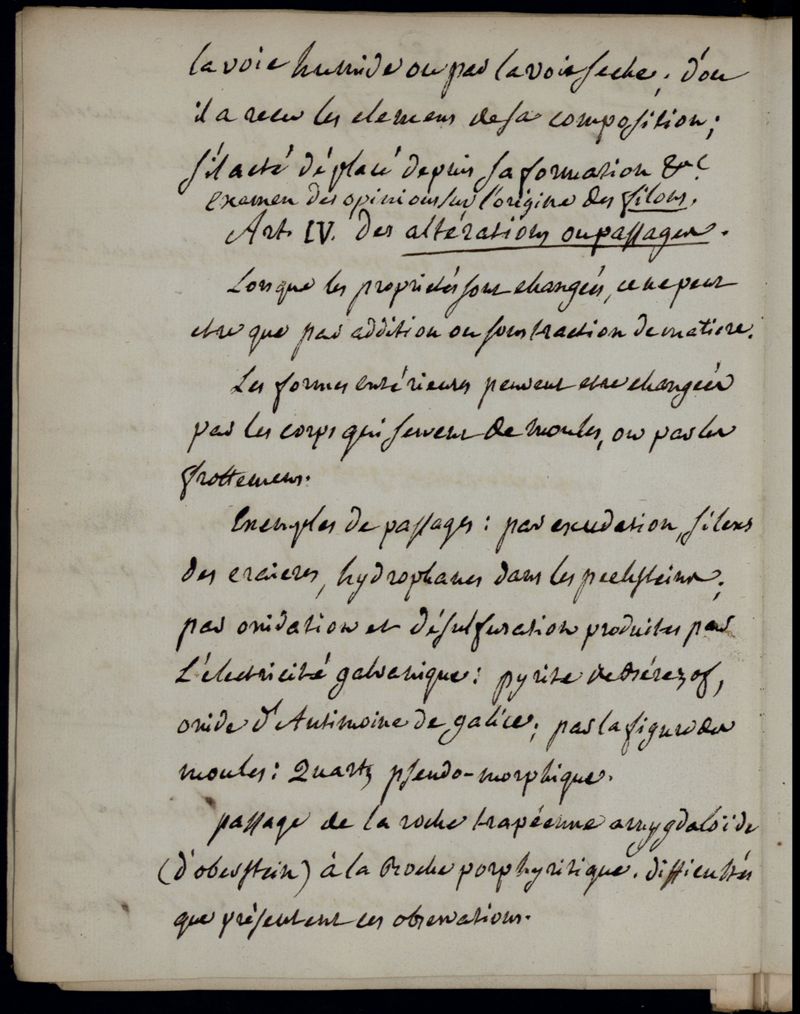 la voie humide ou par la voie seche ; d'ou
il a recu les elemens de sa composition ;
s'il a été déplacé depuis sa formation &c
examen des opinions sur l'origine des filons.
Art. IV. Des altérations ou passages.
Lorsque les propriétés sont changées, ce ne peut
etre que par addition ou soustraction de matiere.
Les formes extérieures peuvent etre changées
par les corps qui servent de moules, ou par les
frottemens.
Exemples de passages : par exudation, silexs
des craieres, hydrophanes dans les pechsteins ;
par oxidation et désulfuration produites par
L'électricité galvanique : pyrite de Bérézof,
oxide d'Antimoine de galice ; par la figure des
moules : Quartz pseudo-morphique.
passage de la roche trapéenne amygdaloïde
(d'oberstein) à la Roche porphyritique. difficultés
que présentent ces observations.